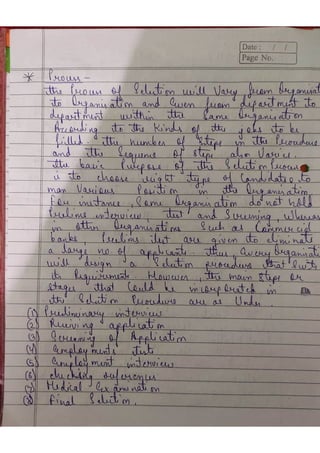 Date : / /
Page No.
* Process –
the Process of Selection will Vary from Organisat
to Organisation and Even from department to
department within the Same Organisation
According to the kinds of the jobs to be
filled. the number of Steps in the Procedure
and the Sequence of steps also Varies.
the basic Purpose of the Selection Process
is to choose right type of Candidates to
man Various Position in the Organisation.
For instance, Some Organisation do not hold
Prelims interview, test and Screening, Whereas
in other Organisations Such as Commercial
banks Prelims test are given to eliminate
a large no of applicants. thus, Every Organisati
will design a Selection procedure that Suits
its Requirement. However, the main Steps or
stages that Could be incorporated in
the Selection Procedure are as Under
(1) Preliminary interview
(2) Receiving application
(3) Screening of Application
(4) Employments tests
(5) Employment interview
(6) checking references
(7) Medical Examination
(8) Final Selection.